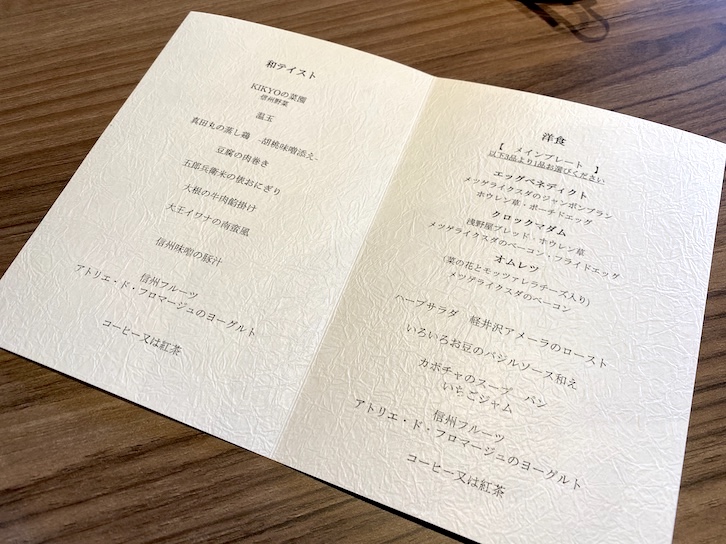 和テイスト
KIKYOの菜園
信州野菜
温玉
真田丸の蒸し鶏 -胡桃味噌添え-
豆腐の肉巻き
五郎兵衛米の俵おにぎり
大根の牛肉餡掛け
大王イワナの南蛮風
信州味噌の豚汁
信州フルーツ
アトリエ・ド・フロマージュのヨーグルト
コーヒー又は紅茶
洋食
【 メインプレート 】
以下3品より1品お選びください
エッグベネディクト
メツゲライクスダのジャンボンブラン
ホウレン草・ポーチドエッグ
クロックマダム
浅野屋ブレッド・ホウレン草
メツゲライクスダのベーコン・フライドエッグ
オムレツ
(菜の花とモッツァレラチーズ入り)
メツゲライクスダのベーコン
ハーブサラダ 軽井沢アメーラのロースト
いろいろお豆のバジルソース和え
カボチャのスープ パン
いちごジャム
信州フルーツ
アトリエ・ド・フロマージュのヨーグルト
コーヒー又は紅茶